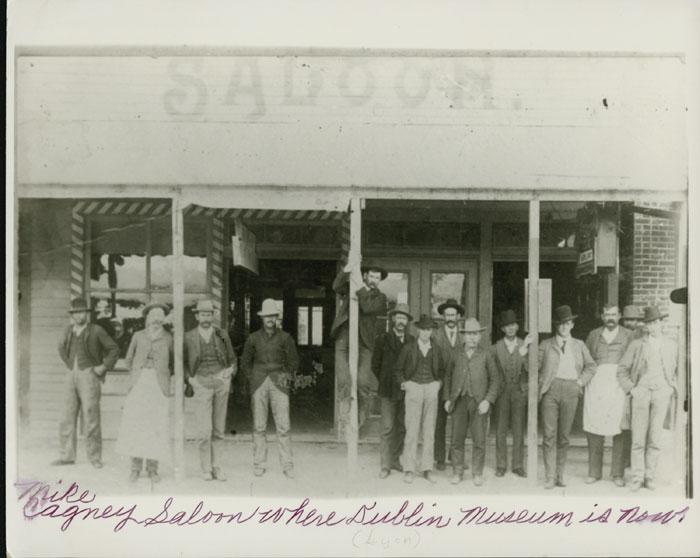 SALOON.
Mike
Cagney Saloon where Dublin Museum is now.
(Lyon)